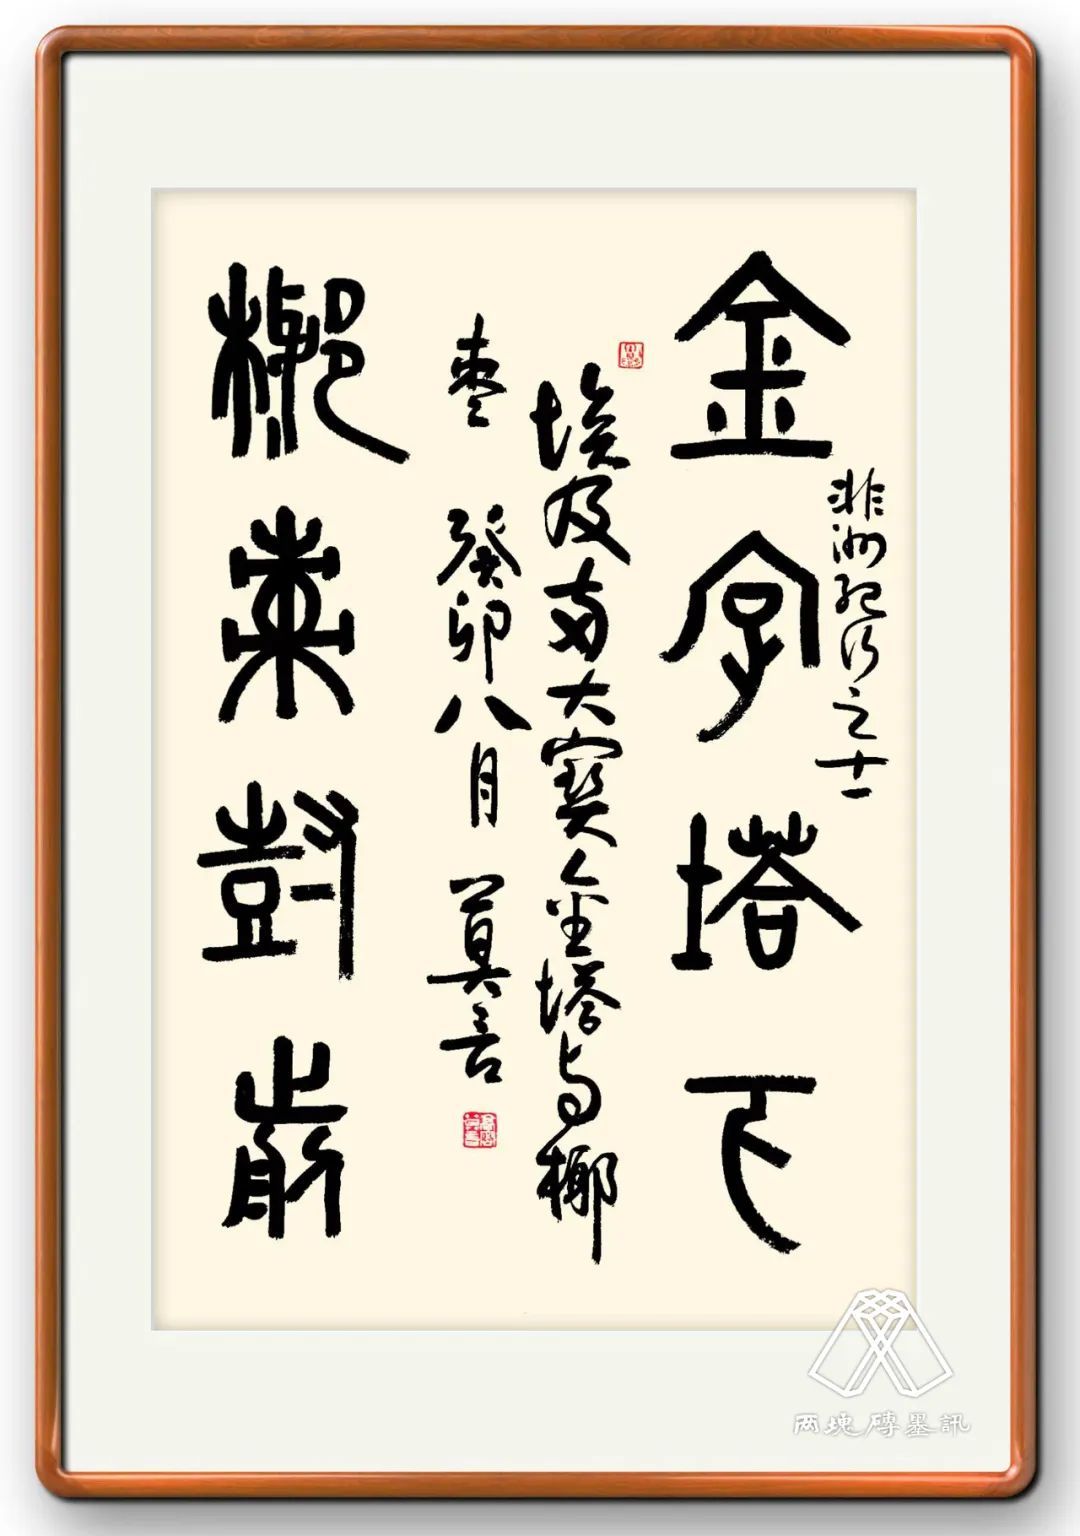 非洲纪行之十一
金字塔下
埃及两大寶金塔与椰
棗 癸卯八月 莫言
椰棗尌前
两塊磚墨訊